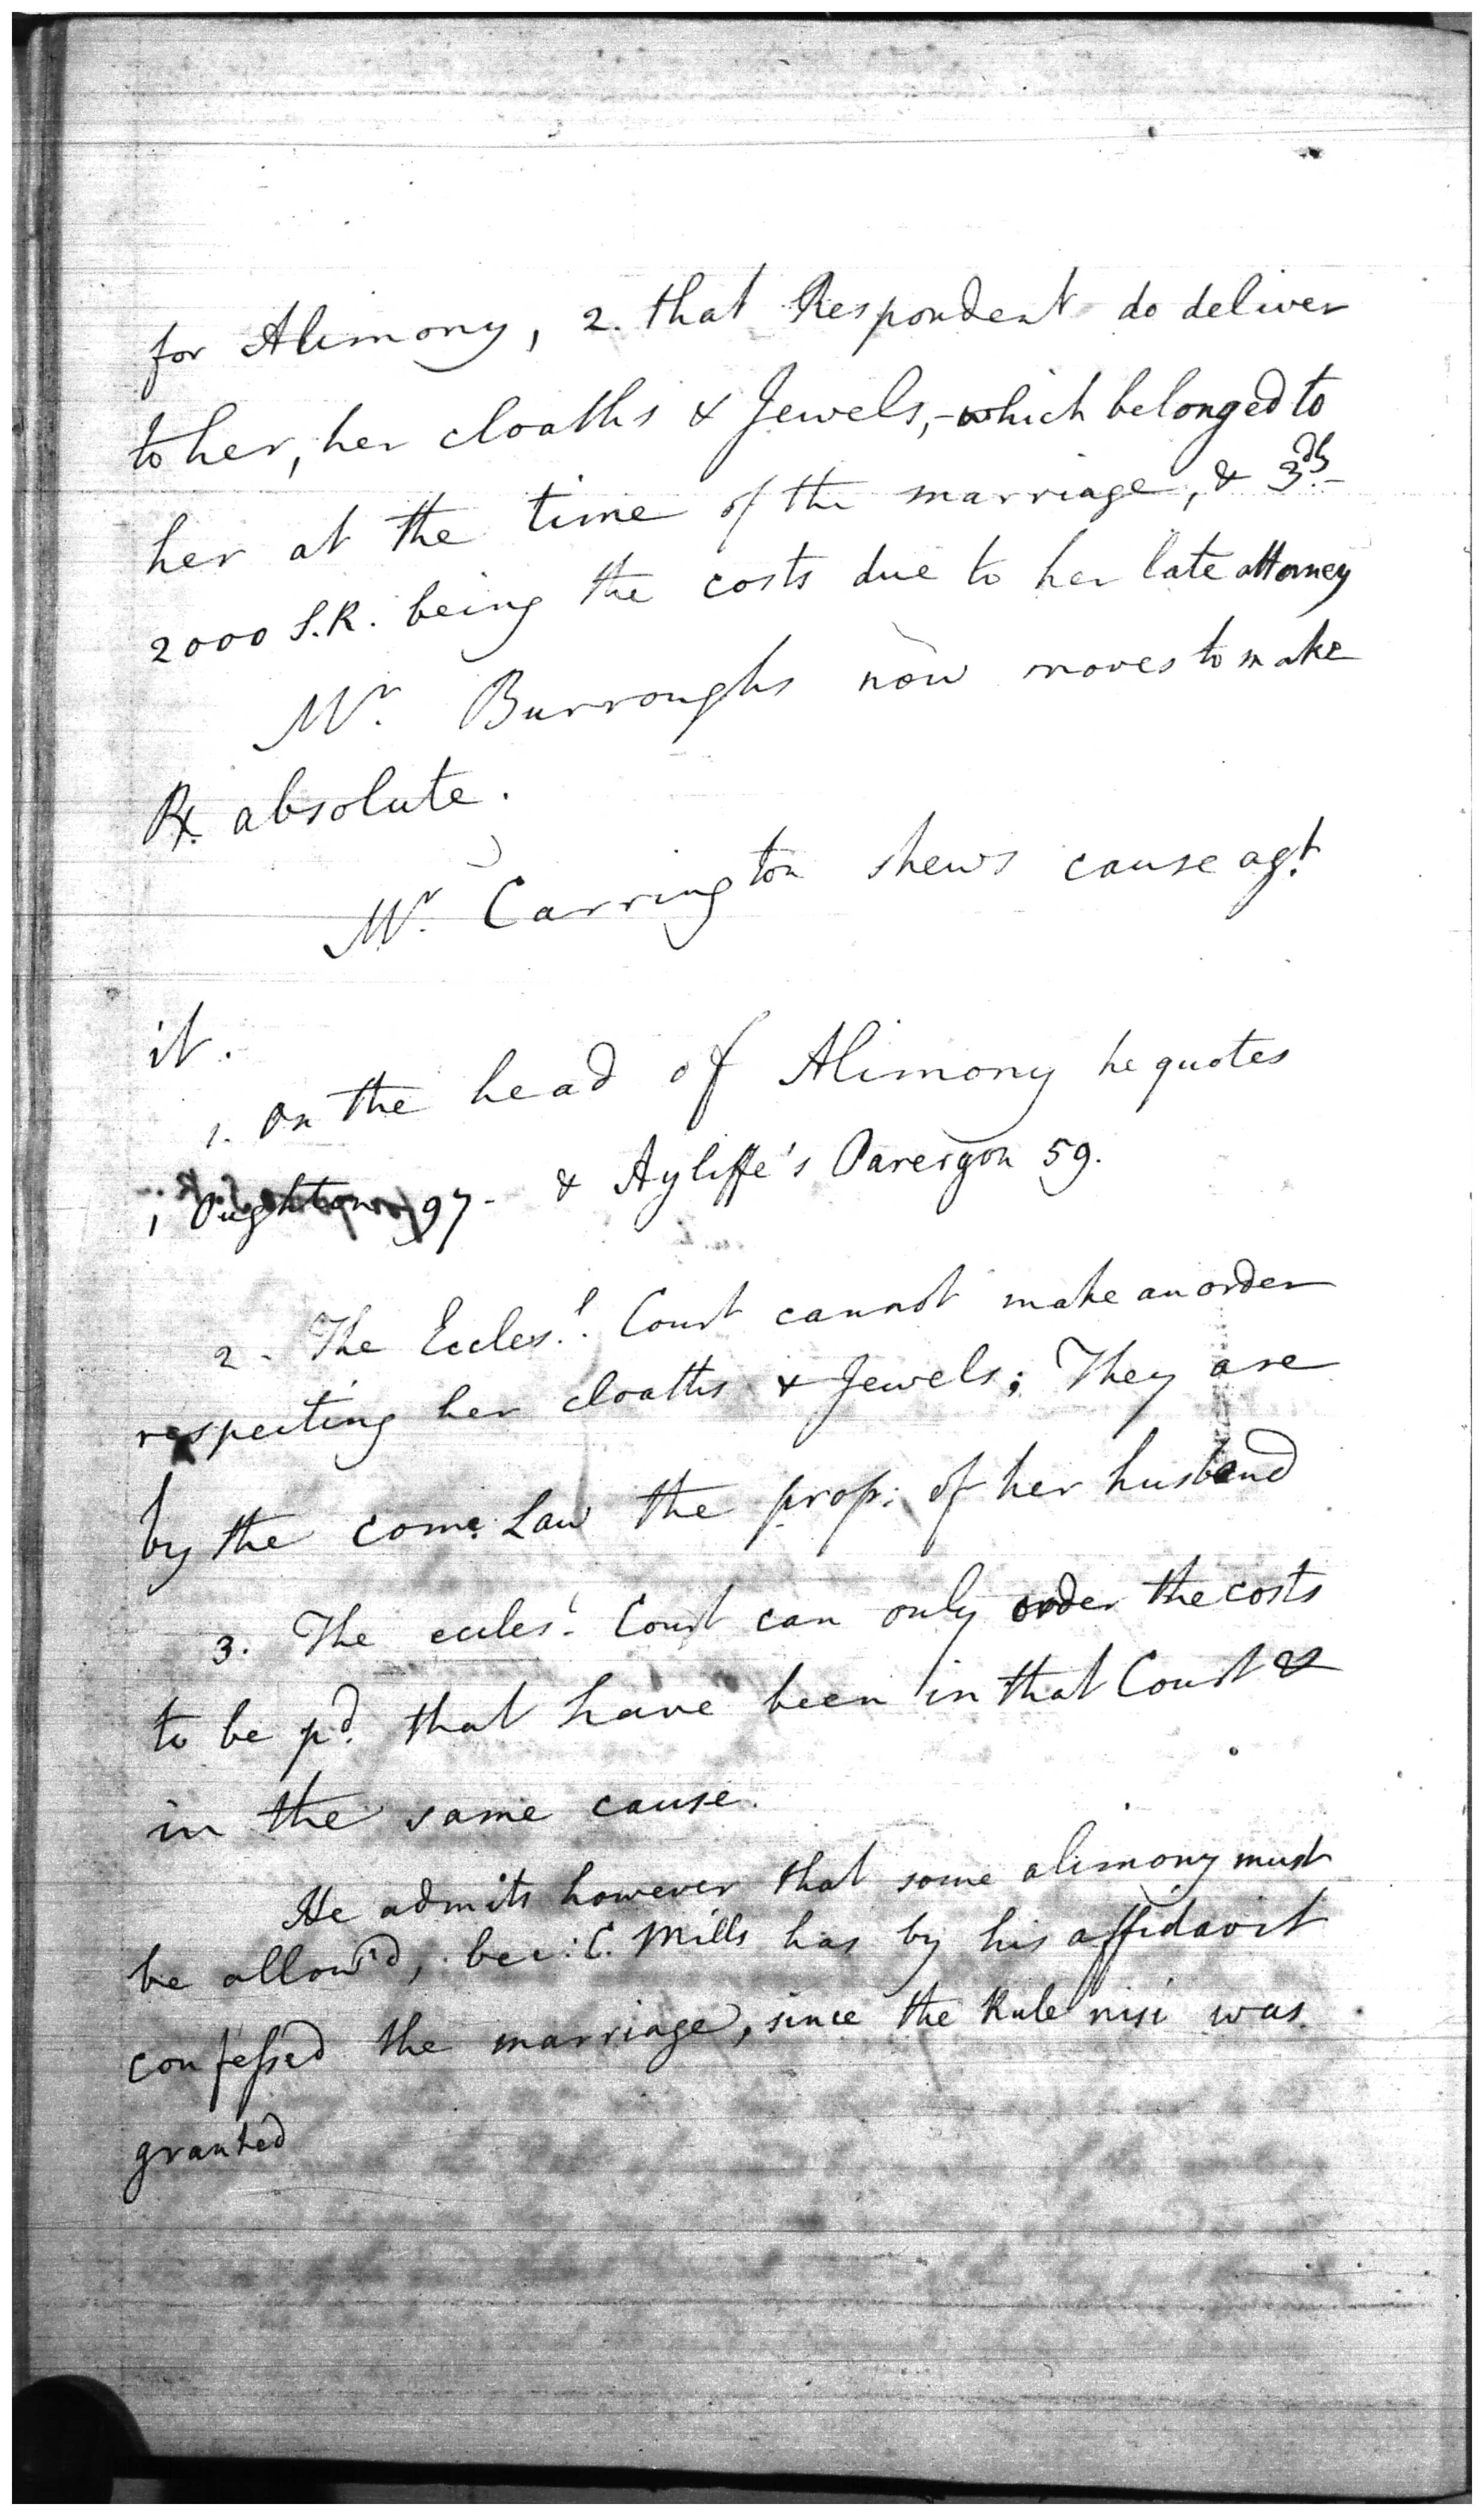 for Alimony, 2. that Respondent do deliver
to her, her cloaths & Jewels, - which belonged to
her at the time of the marriage, & 3dly
2000 S.R. being the costs due to her late attorney
Mr. Burroughs now moves to make
R. absolute.
Mr. Carrington shews cause agt.
it.
1. On the head of Alimony he quotes
1 Oughton 97 - & Ayliffe's Parergon 59.
2. The Eccles.l Court cannot make an order
respecting her cloaths & Jewels; They are
by the comn. Law the prop: of her husband
3. The eccles.l Court can only order the costs
to be pd. that have been in that Court &
in the same cause.
He admits however that some alimony must
be allow'd, bec: C. Mills has by his affidavit
confessed the marriage, since the Rule nisi was
granted